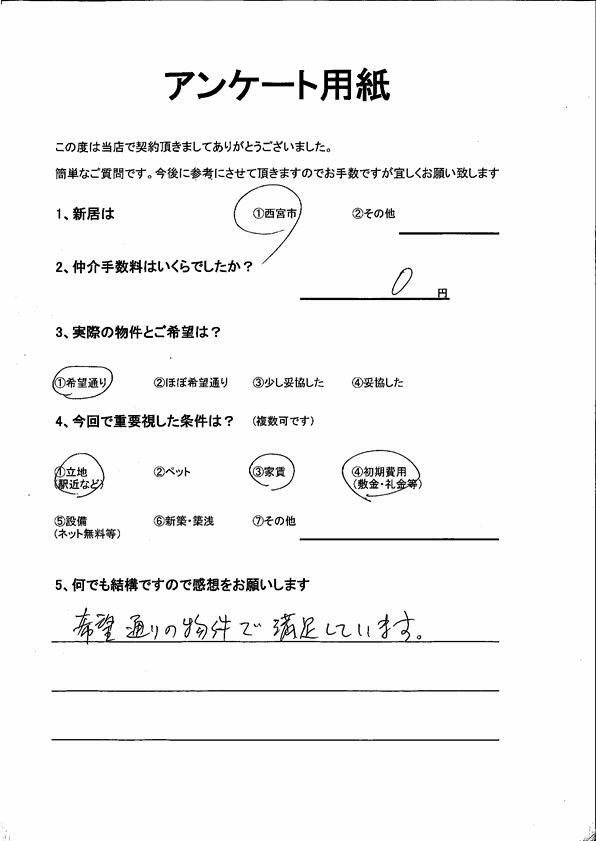 アンケート用紙
この度は当店で契約頂きましてありがとうございました。
簡単なご質問です。今後に参考にさせて頂きますのでお手数ですが宜しくお願い致します
1、新居は ①西宮市 ②その他
2、仲介手数料はいくらでしたか？
0 円
3、実際の物件とご希望は？
①希望通り ②ほぼ希望通り ③少し妥協した ④妥協した
4、今回で重要視した条件は？ （複数可です）
①立地 ②ペット ③家賃 ④初期費用
(駅近など) (敷金・礼金等)
⑤設備 ⑥新築・築浅 ⑦その他
(ネット無料等)
5、何でも結構ですので感想をお願いします
希望通りの物件で満足しています。